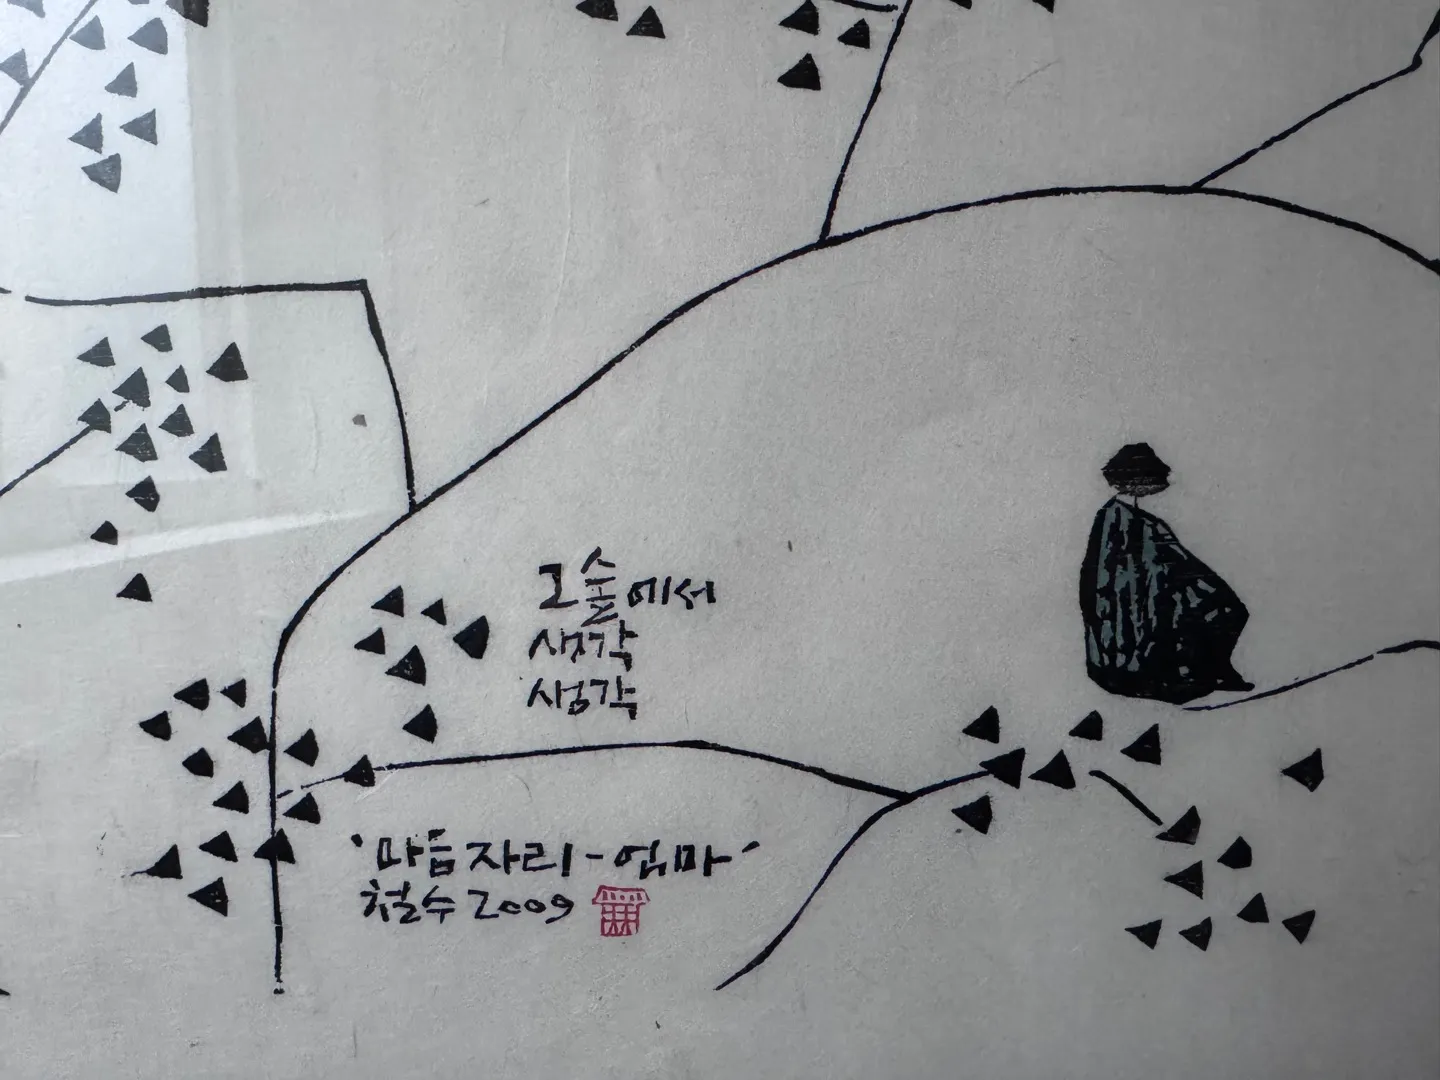 그 숲에서
생각
생각
'마음자리-엄마'
철수 2009